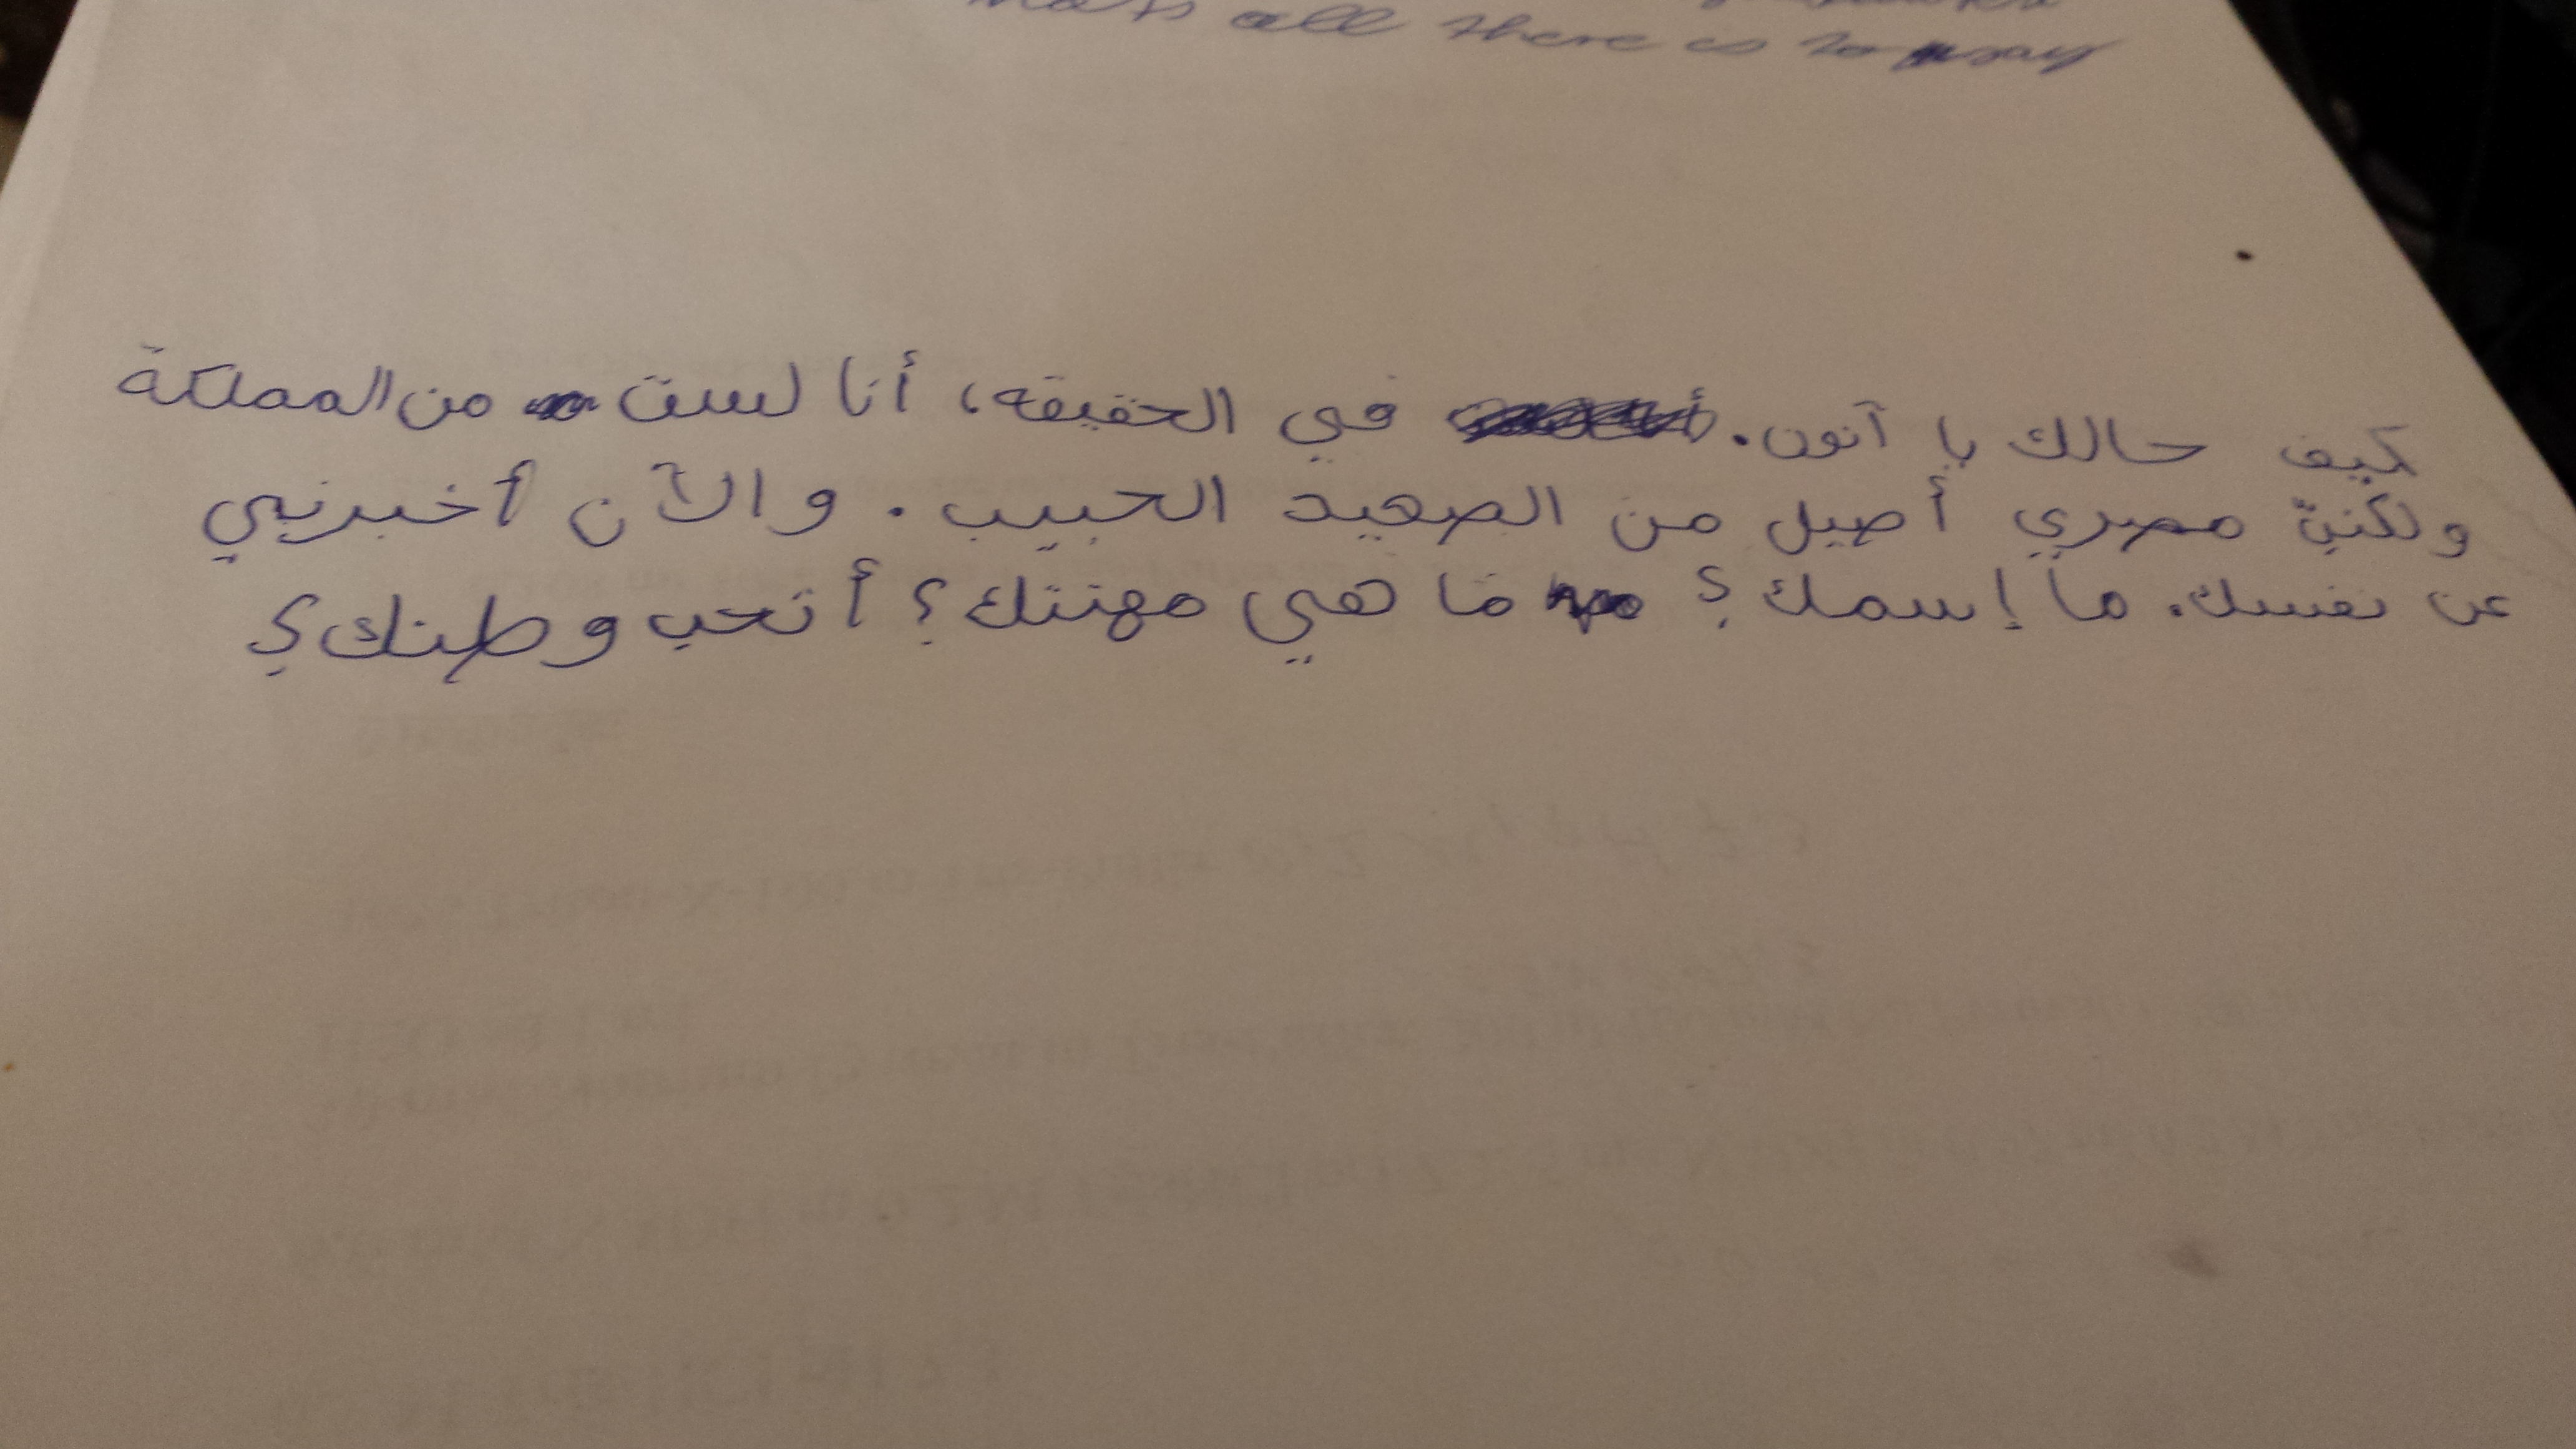 all there is to say
كيف حالك يا آنون. في الحقيقه، أنا لست من المملكة
ولكنيّ مصري أصيل من الصعيد الحبيب. والآن أخبرني
عن نفسك. ما إسمك؟ ما هي مهنتك؟ أتحب وطنك؟